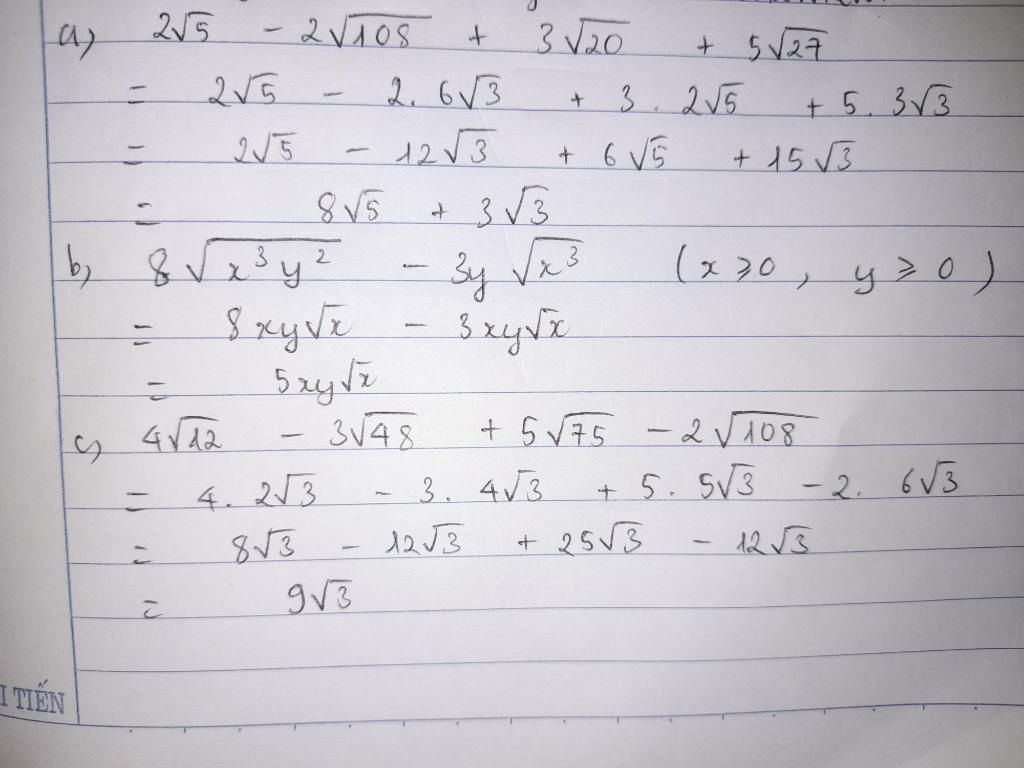 a) 2√5 - 2√108 + 3√20 + 5√27
= 2√5 - 2. 6√3 + 3 . 2√5 + 5. 3√3
= 2√5 - 12√3 + 6√5 + 15√3
= 8√5 + 3√3
b) 8√(x³y²) - 3y√(x³) (x ⩾ 0, y ⩾ 0)
= 8xy√x - 3xy√x
= 5xy√x
c) 4√12 - 3√48 + 5√75 - 2√108
= 4. 2√3 - 3. 4√3 + 5. 5√3 - 2. 6√3
= 8√3 - 12√3 + 25√3 - 12√3
= 9√3
I TIẾN